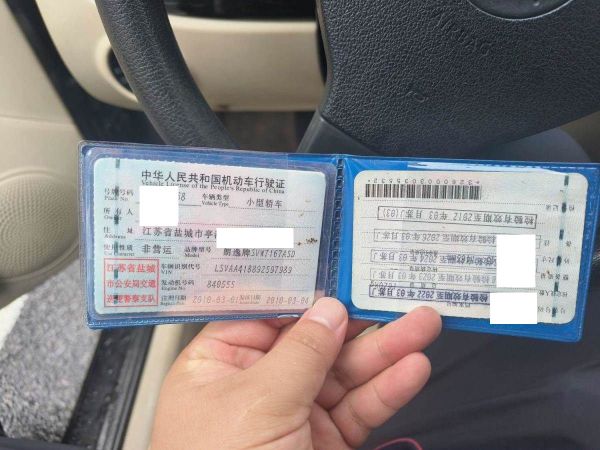 中华人民共和国机动车行驶证
Vehicle License of the People's Republic of China
号牌号码
Plate No.
68
车辆类型
Vehicle Type
小型轿车
所有人
Owner
住址
Address
江苏省盐城市亭
使用性质
Use Character
非营运
品牌型号
Model
朗逸牌SVW7167ASD
江苏省盐城
市公安局交通
巡逻警察支队
车辆识别代号
VIN
LSVAA4188A2597989
发动机号码
Engine No.
840555
注册日期
Register Date
2010-03-01
发证日期
2010-03-04
检验有效期至2012年03月苏J(03)
检验有效期至2026年03
检验有效期至2024年03
检验有效期至2022年03月苏J